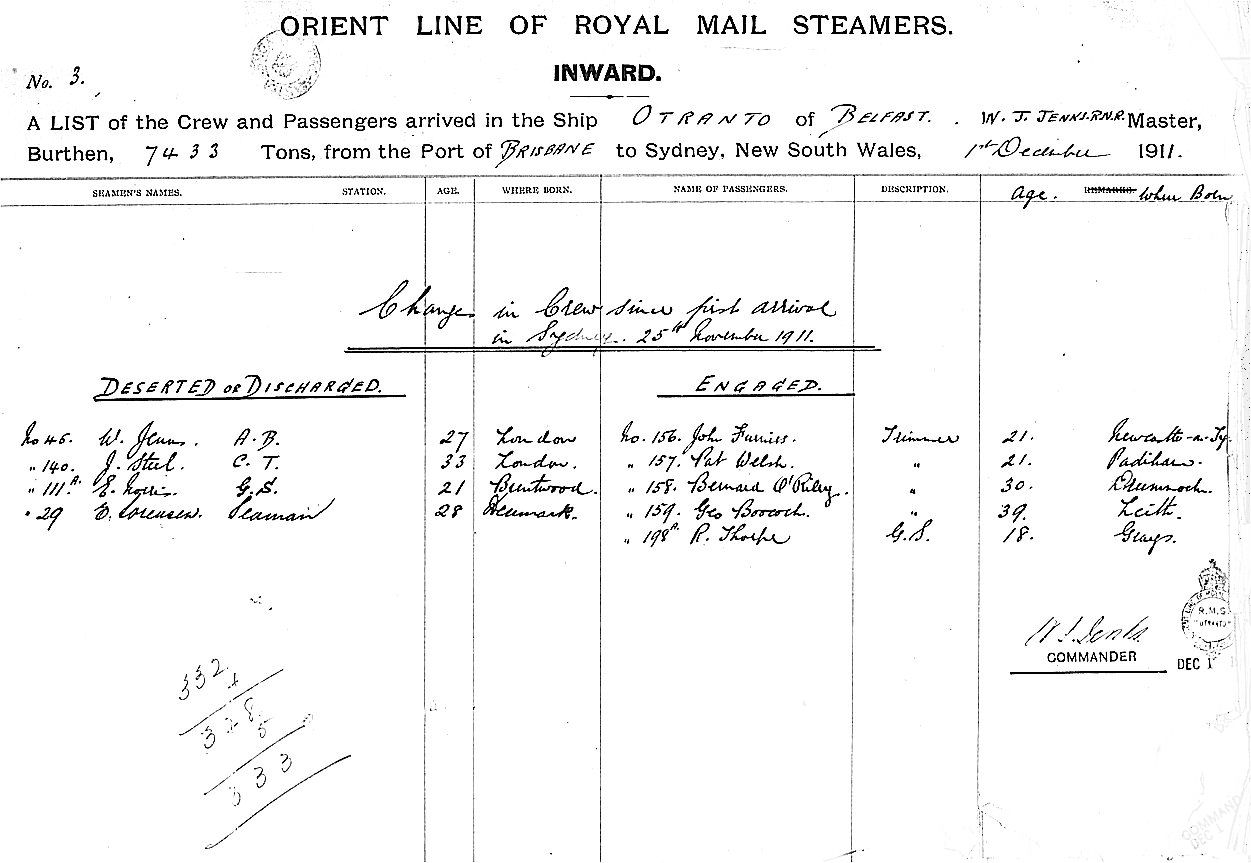 ORIENT LINE OF ROYAL MAIL STEAMERS.
No. 3.
INWARD.
A LIST of the Crew and Passengers arrived in the Ship OTRANTO of BELFAST. W. J. JENKS. R.N.R. Master,
Burthen, 7433 Tons, from the Port of BRISBANE to Sydney, New South Wales, 1st December 1911.
SEAMEN'S NAMES. STATION. AGE. WHERE BORN. NAME OF PASSENGERS. DESCRIPTION. Age. REMARKS. Where Born
Change in Crew since first arrival
in Sydney. 25th November 1911.
DESERTED or DISCHARGED. ENGAGED.
No 45. W. A.B. 27 London No. 156. John Furniss. Trimmer 21. Newcastle-on-Ty.
" 140. J. Steel. C.T. 33 London. " 157. Pat Welsh. " 21. Padiham.
" 111A. E. Norris. G.S. 21 Brentwood. " 158. Bernard O'Riley. " 30.
" 29 E. Sorensen. Seaman 28 Denmark. " 159. Geo Boocock. " 39. Leith.
" 198A. R. Thorpe G.S. 18. Grays.
W J Jenks
COMMANDER
R.M.S.
"OTRANTO"
DEC 1
332
4
328
5
333